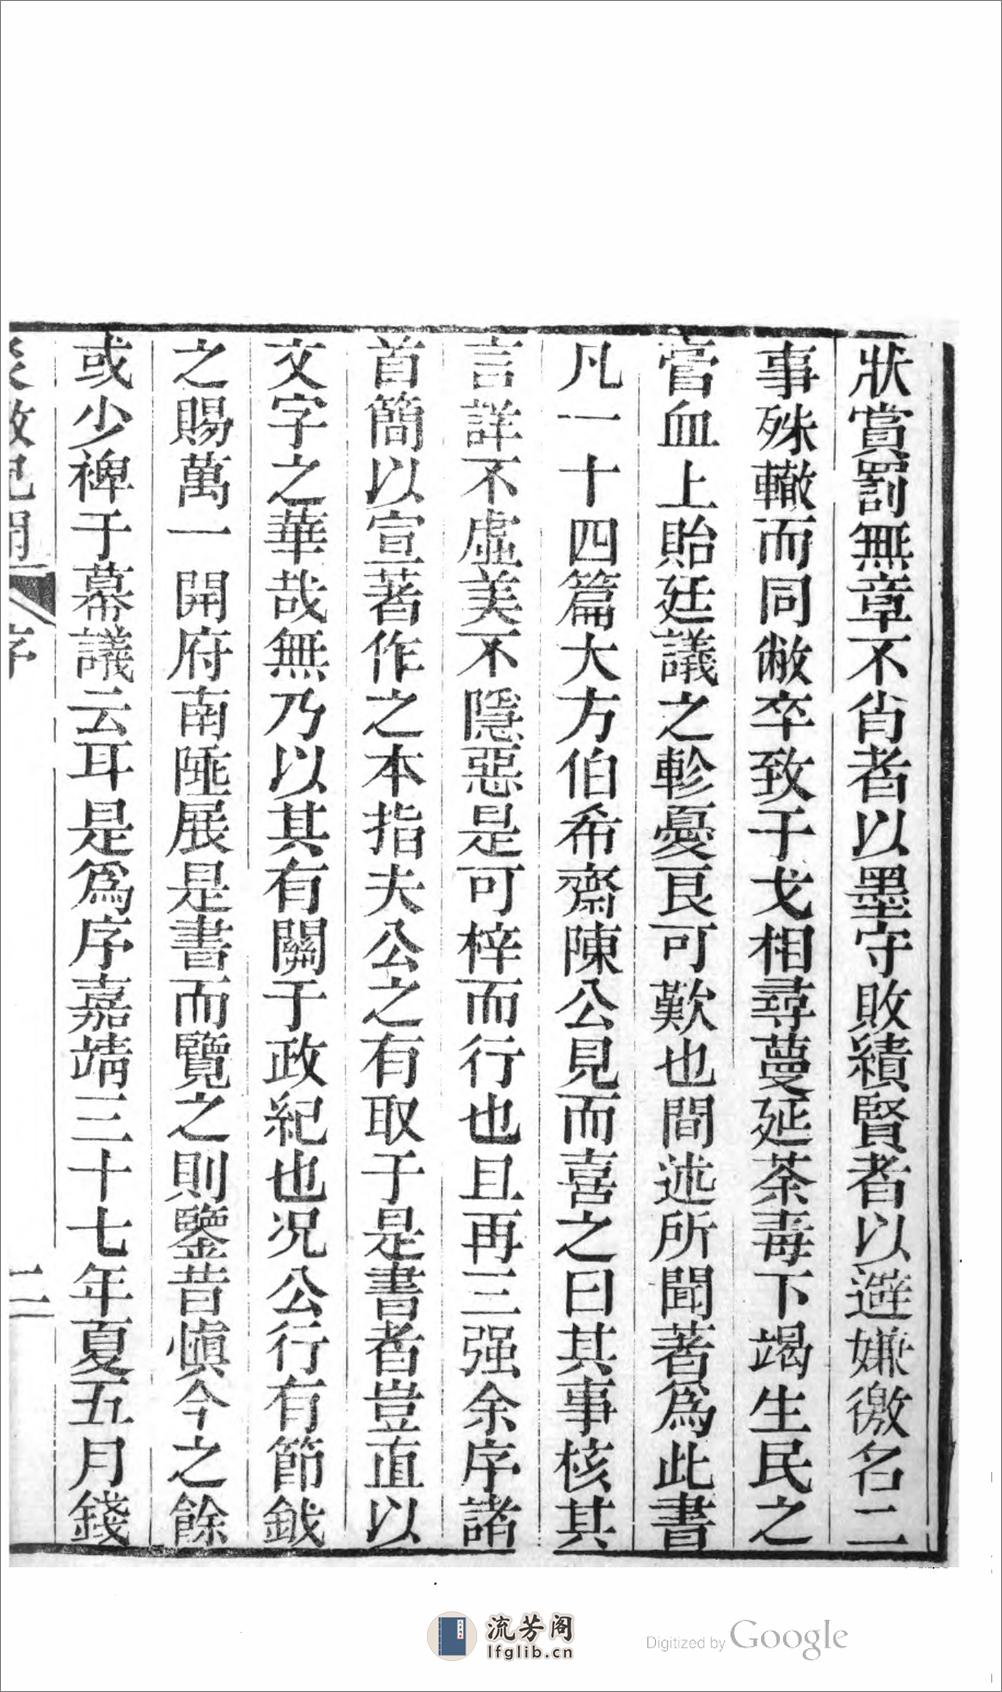 狀賞罰無章不肖者以墨守敗績賢者以避嫌徼名二
事殊轍而同敝卒致于戈相尋蔓延荼毒下竭生民之
膏血上貽廷議之軫憂良可歎也間述所聞著為此書
凡一十四篇大方伯希齋陳公見而喜之曰其事核其
言詳不虛美不隱惡是可梓而行也且再三强余序諸
首簡以宣著作之本指夫公之有取于是書者豈直以
文字之華哉無乃以其有關于政紀也况公行有節鉞
之賜萬一開府南陲展是書而覽之則鑒昔慎今之餘
或少裨于幕議云耳是爲序嘉靖三十七年夏五月錢
序 二
流芳阁
lfglib.cn
Digitized by Google